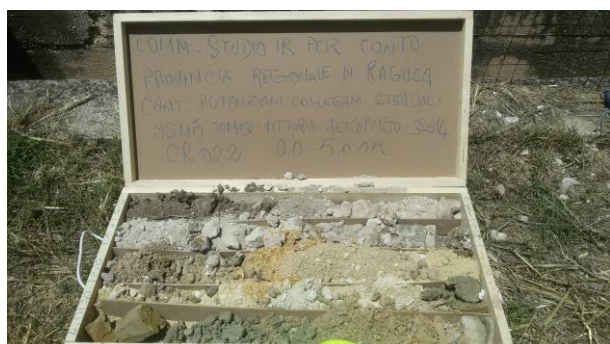 COMM. STUDIO IR PER CONTO
PROVINCIA REGIONALE DI RAGUSA
CANT. POTENZIAM COLLEGAM STRADAL.
SS115 COMISO-VITTORIA AEROPORTO-SS514
CR 022 0.0-5.0 m